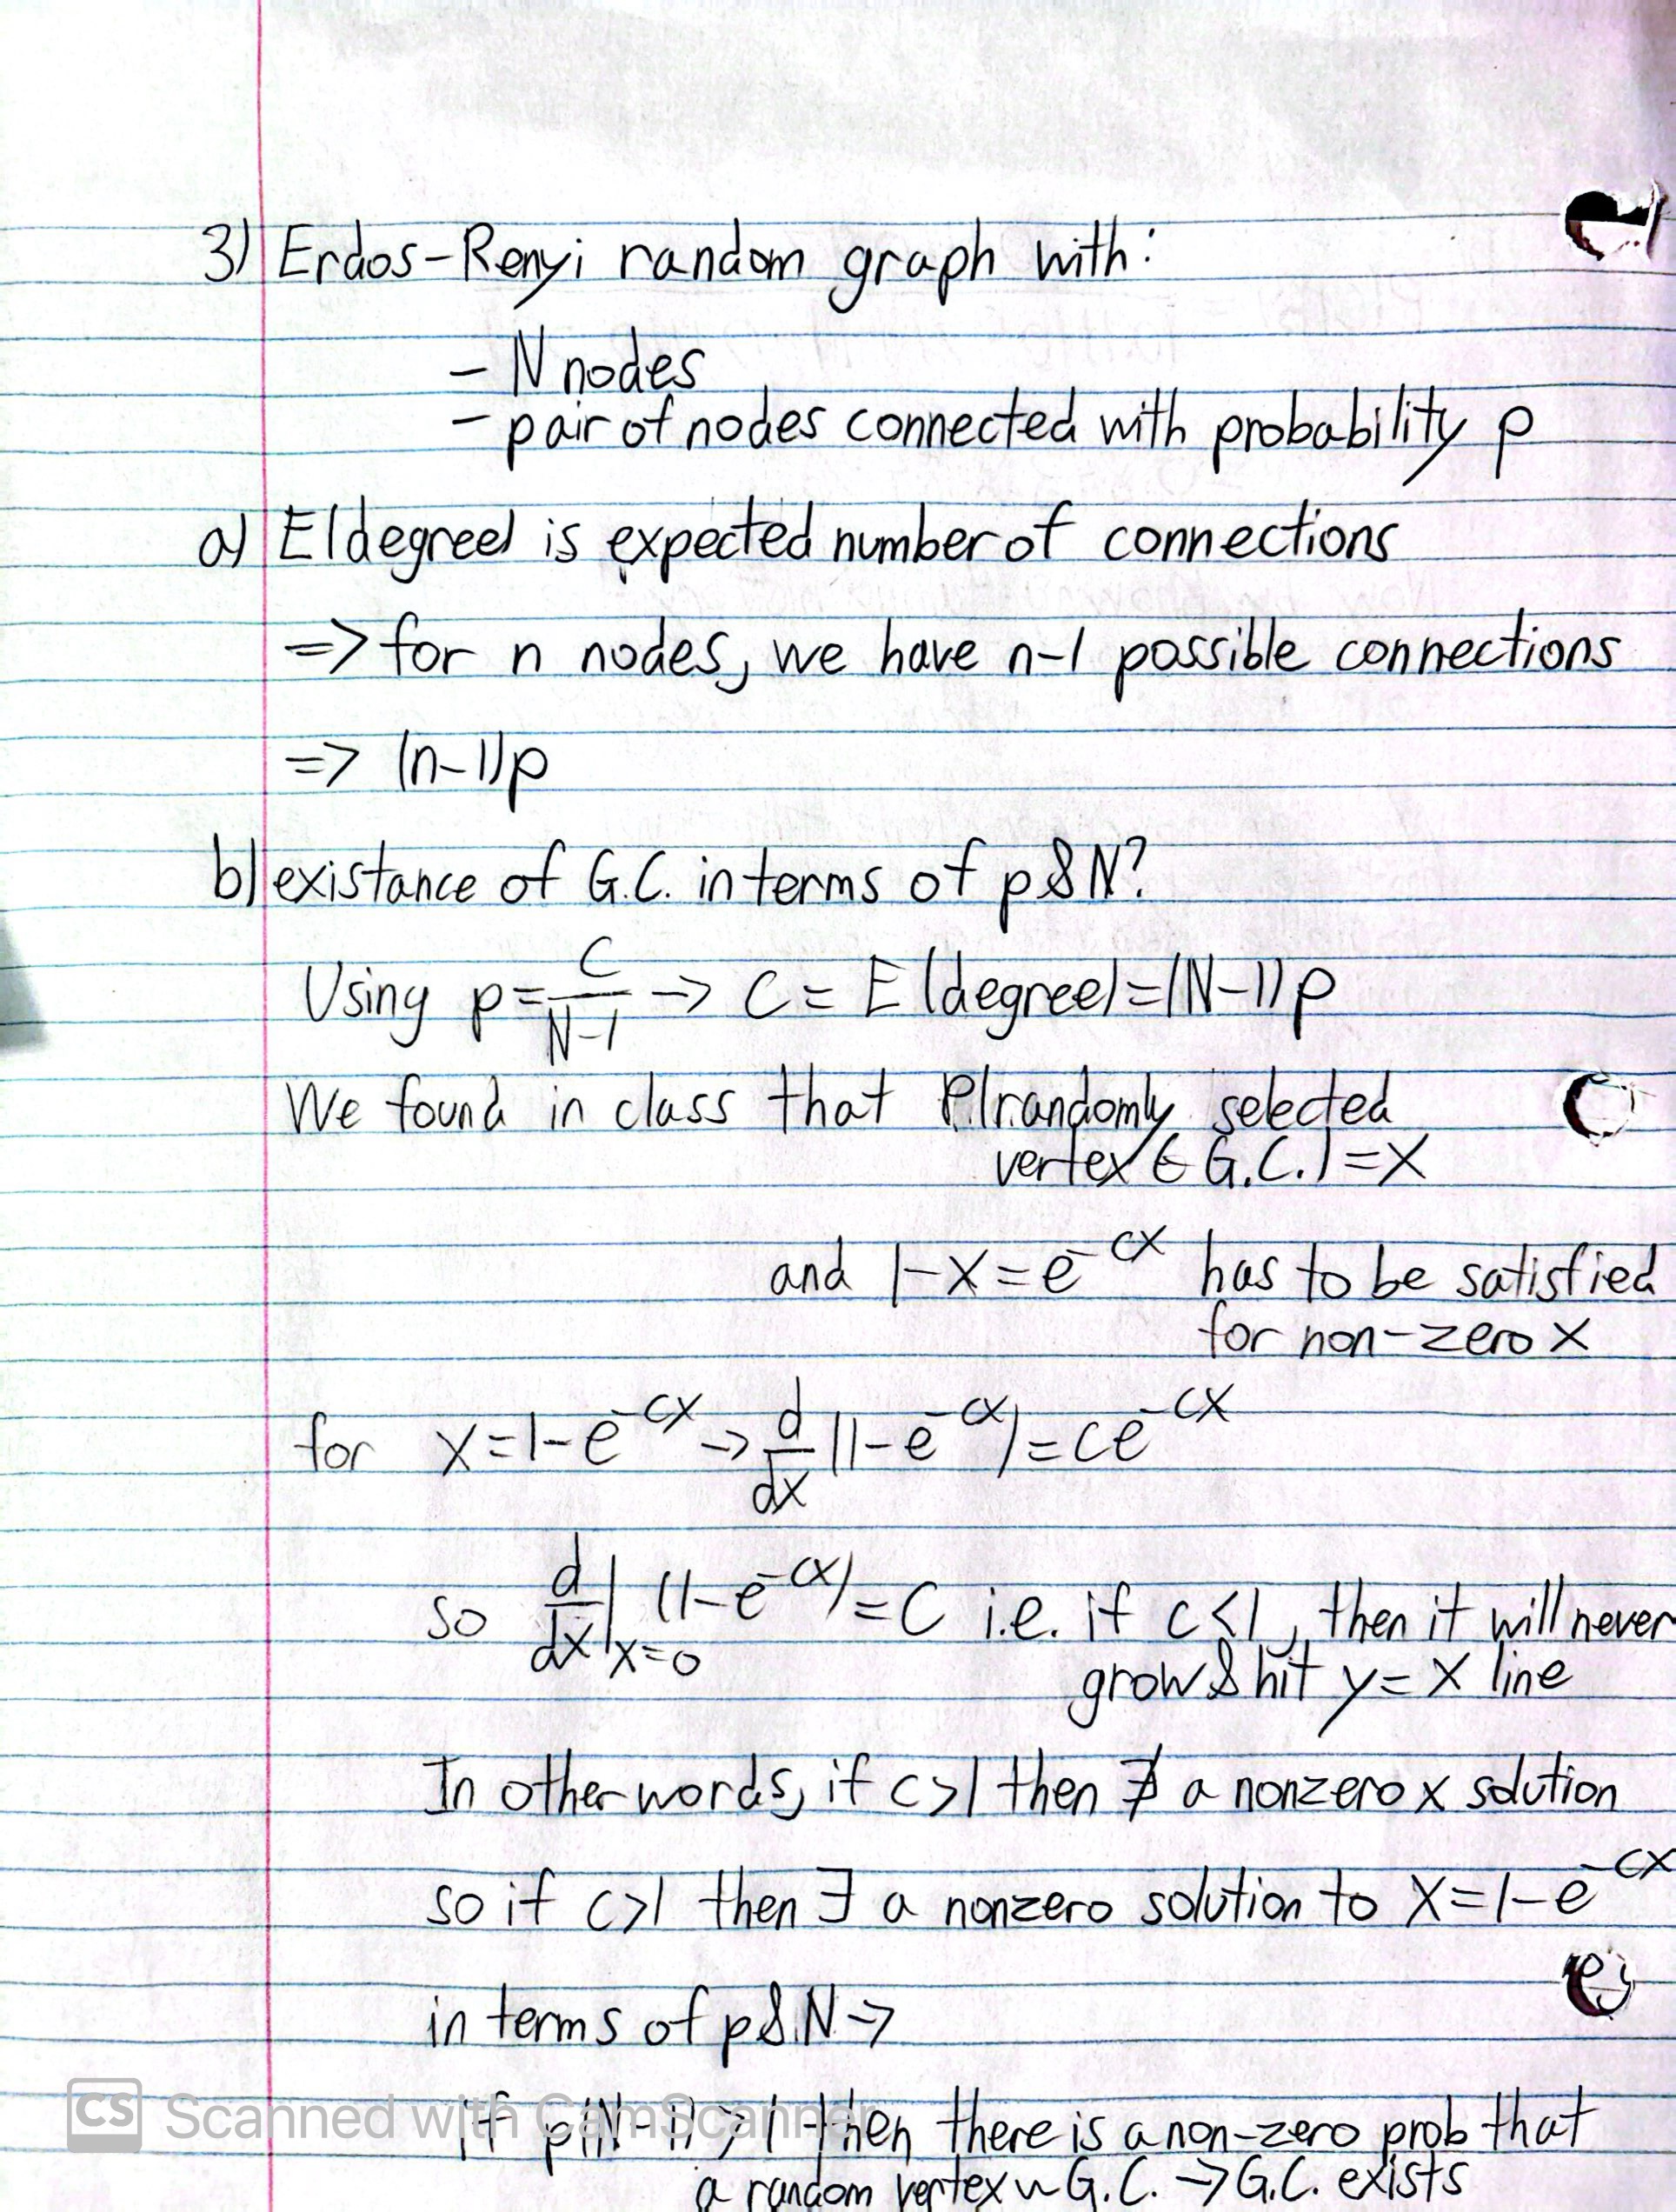 3) Erdos-Renyi random graph with:
- N nodes
- pair of nodes connected with probability p
a) E(degree) is expected number of connections
=> for n nodes, we have n-1 possible connections
=> (n-1)p
b) existance of G.C. in terms of p & N?
Using p = C/(N-1) -> C = E(degree) = (N-1)p
We found in class that P(randomly selected
vertex ∈ G.C.) = X
and 1-x = e^-cx has to be satisfied
for non-zero X
for x = 1-e^-cx -> d/dx (1-e^-cx) = ce^-cx
so d/dx|x=0 (1-e^-cx) = C i.e. if c<1, then it will never
grow & hit y = x line
In other words, if c>1 then ∄ a nonzero x solution
so if c>1 then ∃ a nonzero solution to X = 1-e^-cx
in terms of p & N ->
if p(N-1) > 1 then there is a non-zero prob that
a random vertex in G.C. -> G.C. exists
CS Scanned with CamScanner